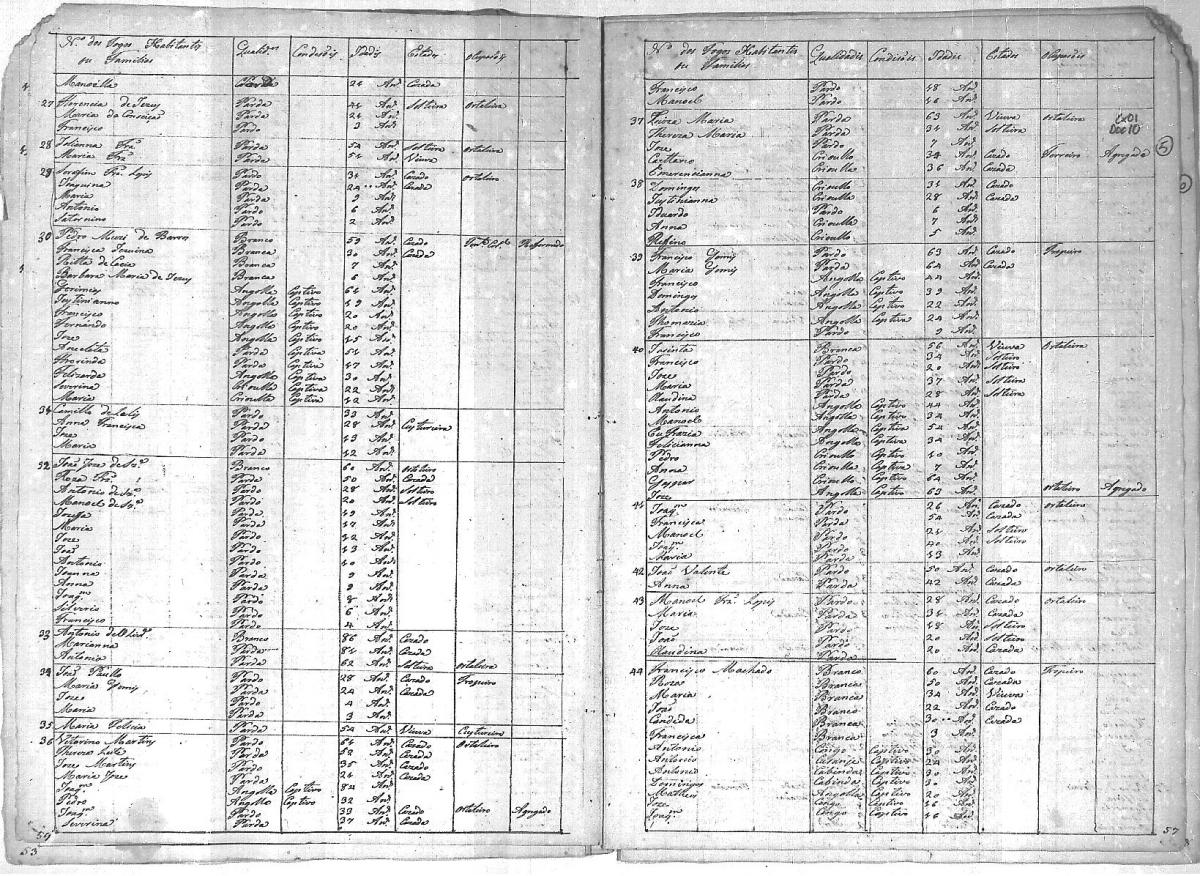 N.º dos Fogos Habitantes Qualid.es Condesõis Idadis Estados Ocupesõis
ou Familias
Manoella Parda 21 An.s Cazada
27 Florencia de Jezus Parda 41 An.s Solteira ortaleira
Maria da Conseiçaõ Parda 21 An.s
Francisco Pardo 3 An.s
28 Julianna Frz.ª Parda 54 An.s Solteira ortaleira
Maria Frz.ª Parda 51 An.s Viuva
29 Serafim Frz.ª Lopis Pardo 31 An.s Cazado ortaleiro
Joaquina Parda 24 An.s Cazada
Maria Parda 9 An.s
Antonio Pardo 6 An.s
Saternino Pardo 2 An.s
30 Pedro Muniz de Barros Branco 59 An.s Cazado Reformado
Francisca Branca 30 An.s Cazada
Ritta de Cacia Branca 7 An.s
Barbara Maria de Jezus Branca 6 An.s
Angolla Captivo 61 An.s
Justinianno Angolla Captivo 49 An.s
Francisco Angolla Captivo 20 An.s
Fernando Angolla Captivo 20 An.s
Joze Angolla Captivo 15 An.s
Anecleta Parda Captiva 51 An.s
Florinda Parda Captiva 17 An.s
Felizarda Angolla Captiva 30 An.s
Severina Crioulla Captiva 22 An.s
Maria Crioulla Captiva 12 An.s
31 Camilla de Lelis Pardo 33 An.s
Anna Francisca Parda 28 An.s Custureira
Joze Pardo 13 An.s
Maria Parda 12 An.s
32 Joaõ Joze de Sz.ª Branco 60 An.s ortaleiro
Roza Frz.ª Parda 50 An.s Cazada
Antonio de Sz.ª Pardo 28 An.s Solteiro
Manoel de Sz.ª Pardo 20 An.s Solteiro
Jozefa Parda 19 An.s
Maria Parda 17 An.s
Joze Pardo 12 An.s
Joaõ Pardo 13 An.s
Antonio Pardo 10 An.s
Joanna Parda 9 An.s
Anna Parda 9 An.s
Joaq.m Pardo 8 An.s
Silverio Pardo 6 An.s
Francisco Pardo 4 An.s
33 Antonio de Branco 86 An.s Cazado
Marianna Parda 81 An.s Cazada
Antonia Parda 62 An.s Solteira ortaleira
34 Joaõ Paullo Pardo 28 An.s Cazado
Maria Gomis Parda 24 An.s Cazada
Joze Pardo 4 An.s
Maria Parda 3 An.s
35 Maria Parda 54 An.s Viuva Custureira
36 Vitorino Martins Pardo 61 An.s Cazado ortaleiro
Thereza Leite Parda 52 An.s Cazada
Joze Martins Pardo 35 An.s Cazado
Maria Joze Parda 21 An.s Cazada
Joaq.m Angolla Captivo 84 An.s
Pedro Angolla Captivo 32 An.s
Joaq.m Pardo 33 An.s Cazado ortaleiro Agregado
Severina Parda 37 An.s Cazada
59
53
N.º dos Fogos Habitantes Qualidades Condisõis Idadis Estados ocupesõis
ou Familias
Francisco Pardo 18 An.s
Manoel Pardo 16 An.s
37 Luiza Maria Parda 63 An.s Viuva ortaleira
Thereza Maria Parda 31 An.s Solteira
Joze Pardo 7 An.s
Caettano Crioullo 34 An.s Cazado Ferreiro Agregado
Emerencianna Crioulla 36 An.s Cazada
Cx01
Doc10
5
38 Domingos Crioullo 31 An.s Cazado
Justinianna Crioulla 28 An.s Cazada
Eduardo Pardo 6 An.s
Anna Crioulla 7 An.s
Rufina Crioulla 5 An.s
39 Francisco Gomis Pardo 63 An.s Cazado
Maria Gomis Parda 64 An.s Cazada
Francisco Angolla Captivo 44 An.s
Domingos Angolla Captivo 39 An.s
Antonio Angolla Captivo 22 An.s
Thomazia Angolla Captiva 24 An.s
Francisco Pardo 9 An.s
40 Jasinta Branca 56 An.s Viuva ortaleira
Francisco Pardo 34 An.s Solteiro
Joze Pardo 20 An.s Solteiro
Maria Parda 37 An.s Solteira
Claudina Parda 28 An.s Solteira
Antonio Angolla Captivo 44 An.s
Manoel Angolla Captivo 34 An.s
Eufrazia Angolla Captiva 54 An.s
Felicianna Angolla Captiva 34 An.s
Pedro Crioullo Captivo 10 An.s
Anna Crioulla Captiva 7 An.s
Gaspar Crioullo Captivo 64 An.s
Joze Angolla Captivo 63 An.s ortaleiro Agregado
41 Joaq.m Pardo 26 An.s Cazado ortaleiro
Francisca Parda 54 An.s Cazada
Manoel Pardo 21 An.s Solteiro
Joaq.m Pardo 40 An.s Solteiro
Maria Parda 13 An.s
42 Joaõ Valente Pardo 50 An.s Cazado ortaleiro
Anna Parda 42 An.s Cazada
43 Manoel Frz.ª Lopis Pardo 28 An.s Cazado ortaleiro
Maria Parda 31 An.s Cazada
Joze Pardo 18 An.s Solteiro
Joaõ Pardo 20 An.s Solteiro
Claudina Parda 20 An.s Cazada
44 Francisco Machado Branco 60 An.s Cazado
Roza Branca 50 An.s Cazada
Maria Branca 34 An.s Viuva
Joaõ Branco 22 An.s Cazado
Candeda Branca 30 An.s Cazada
Francisca Branca 3 An.s
Antonio Congo Captivo 30 An.s
Antonio Captivo 24 An.s
Antonio Cabinda Captivo 30 An.s
Domingos Cabinda Captivo 30 An.s
Matheus Angolla Captivo 20 An.s
Joze Congo Captivo 16 An.s
Joaq.m Congo Captivo 16 An.s
57